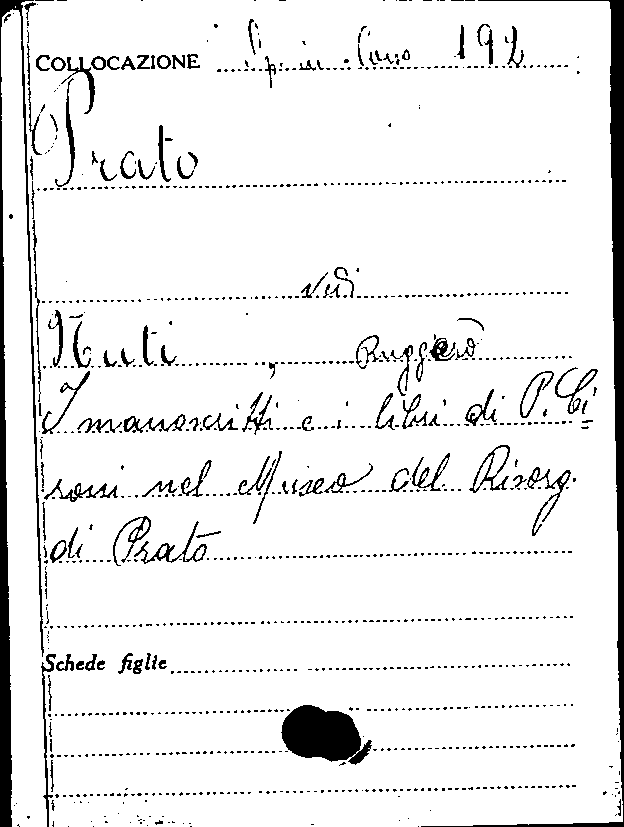 COLLOCAZIONE 192
Prato
vedi
Nuti, Ruggero
I manoscritti e i libri di P. Ci=
roni nel Museo del Risorg.
di Prato
Schede figlie